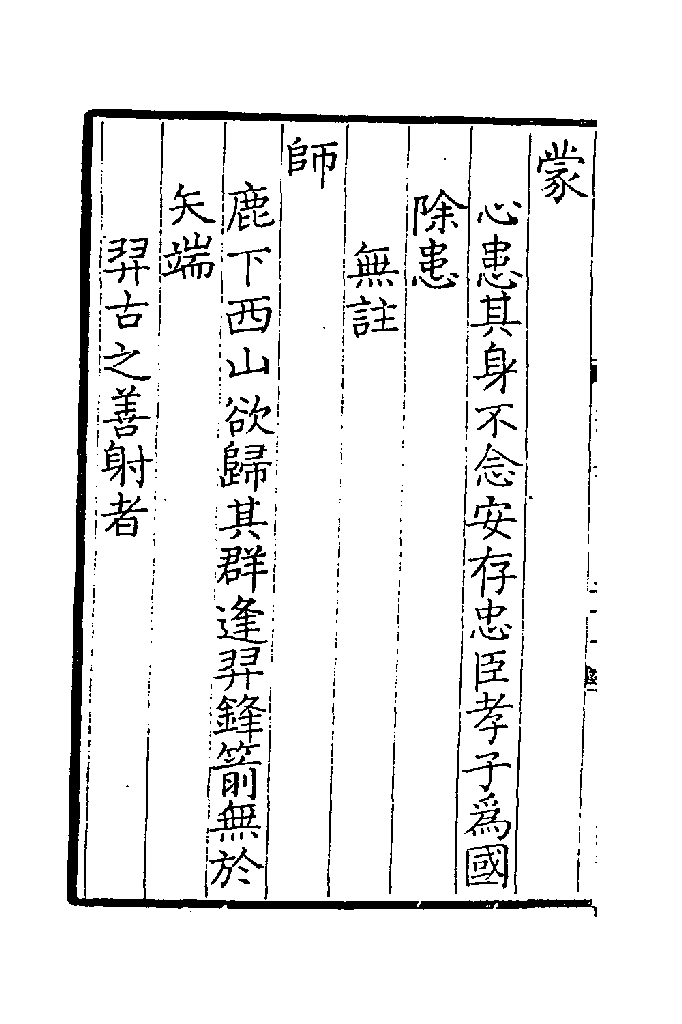 蒙
心患其身不念安存忠臣孝子為國
除患
無註
師
鹿下西山欲歸其群逢羿鋒箭無於
矢端
羿古之善射者